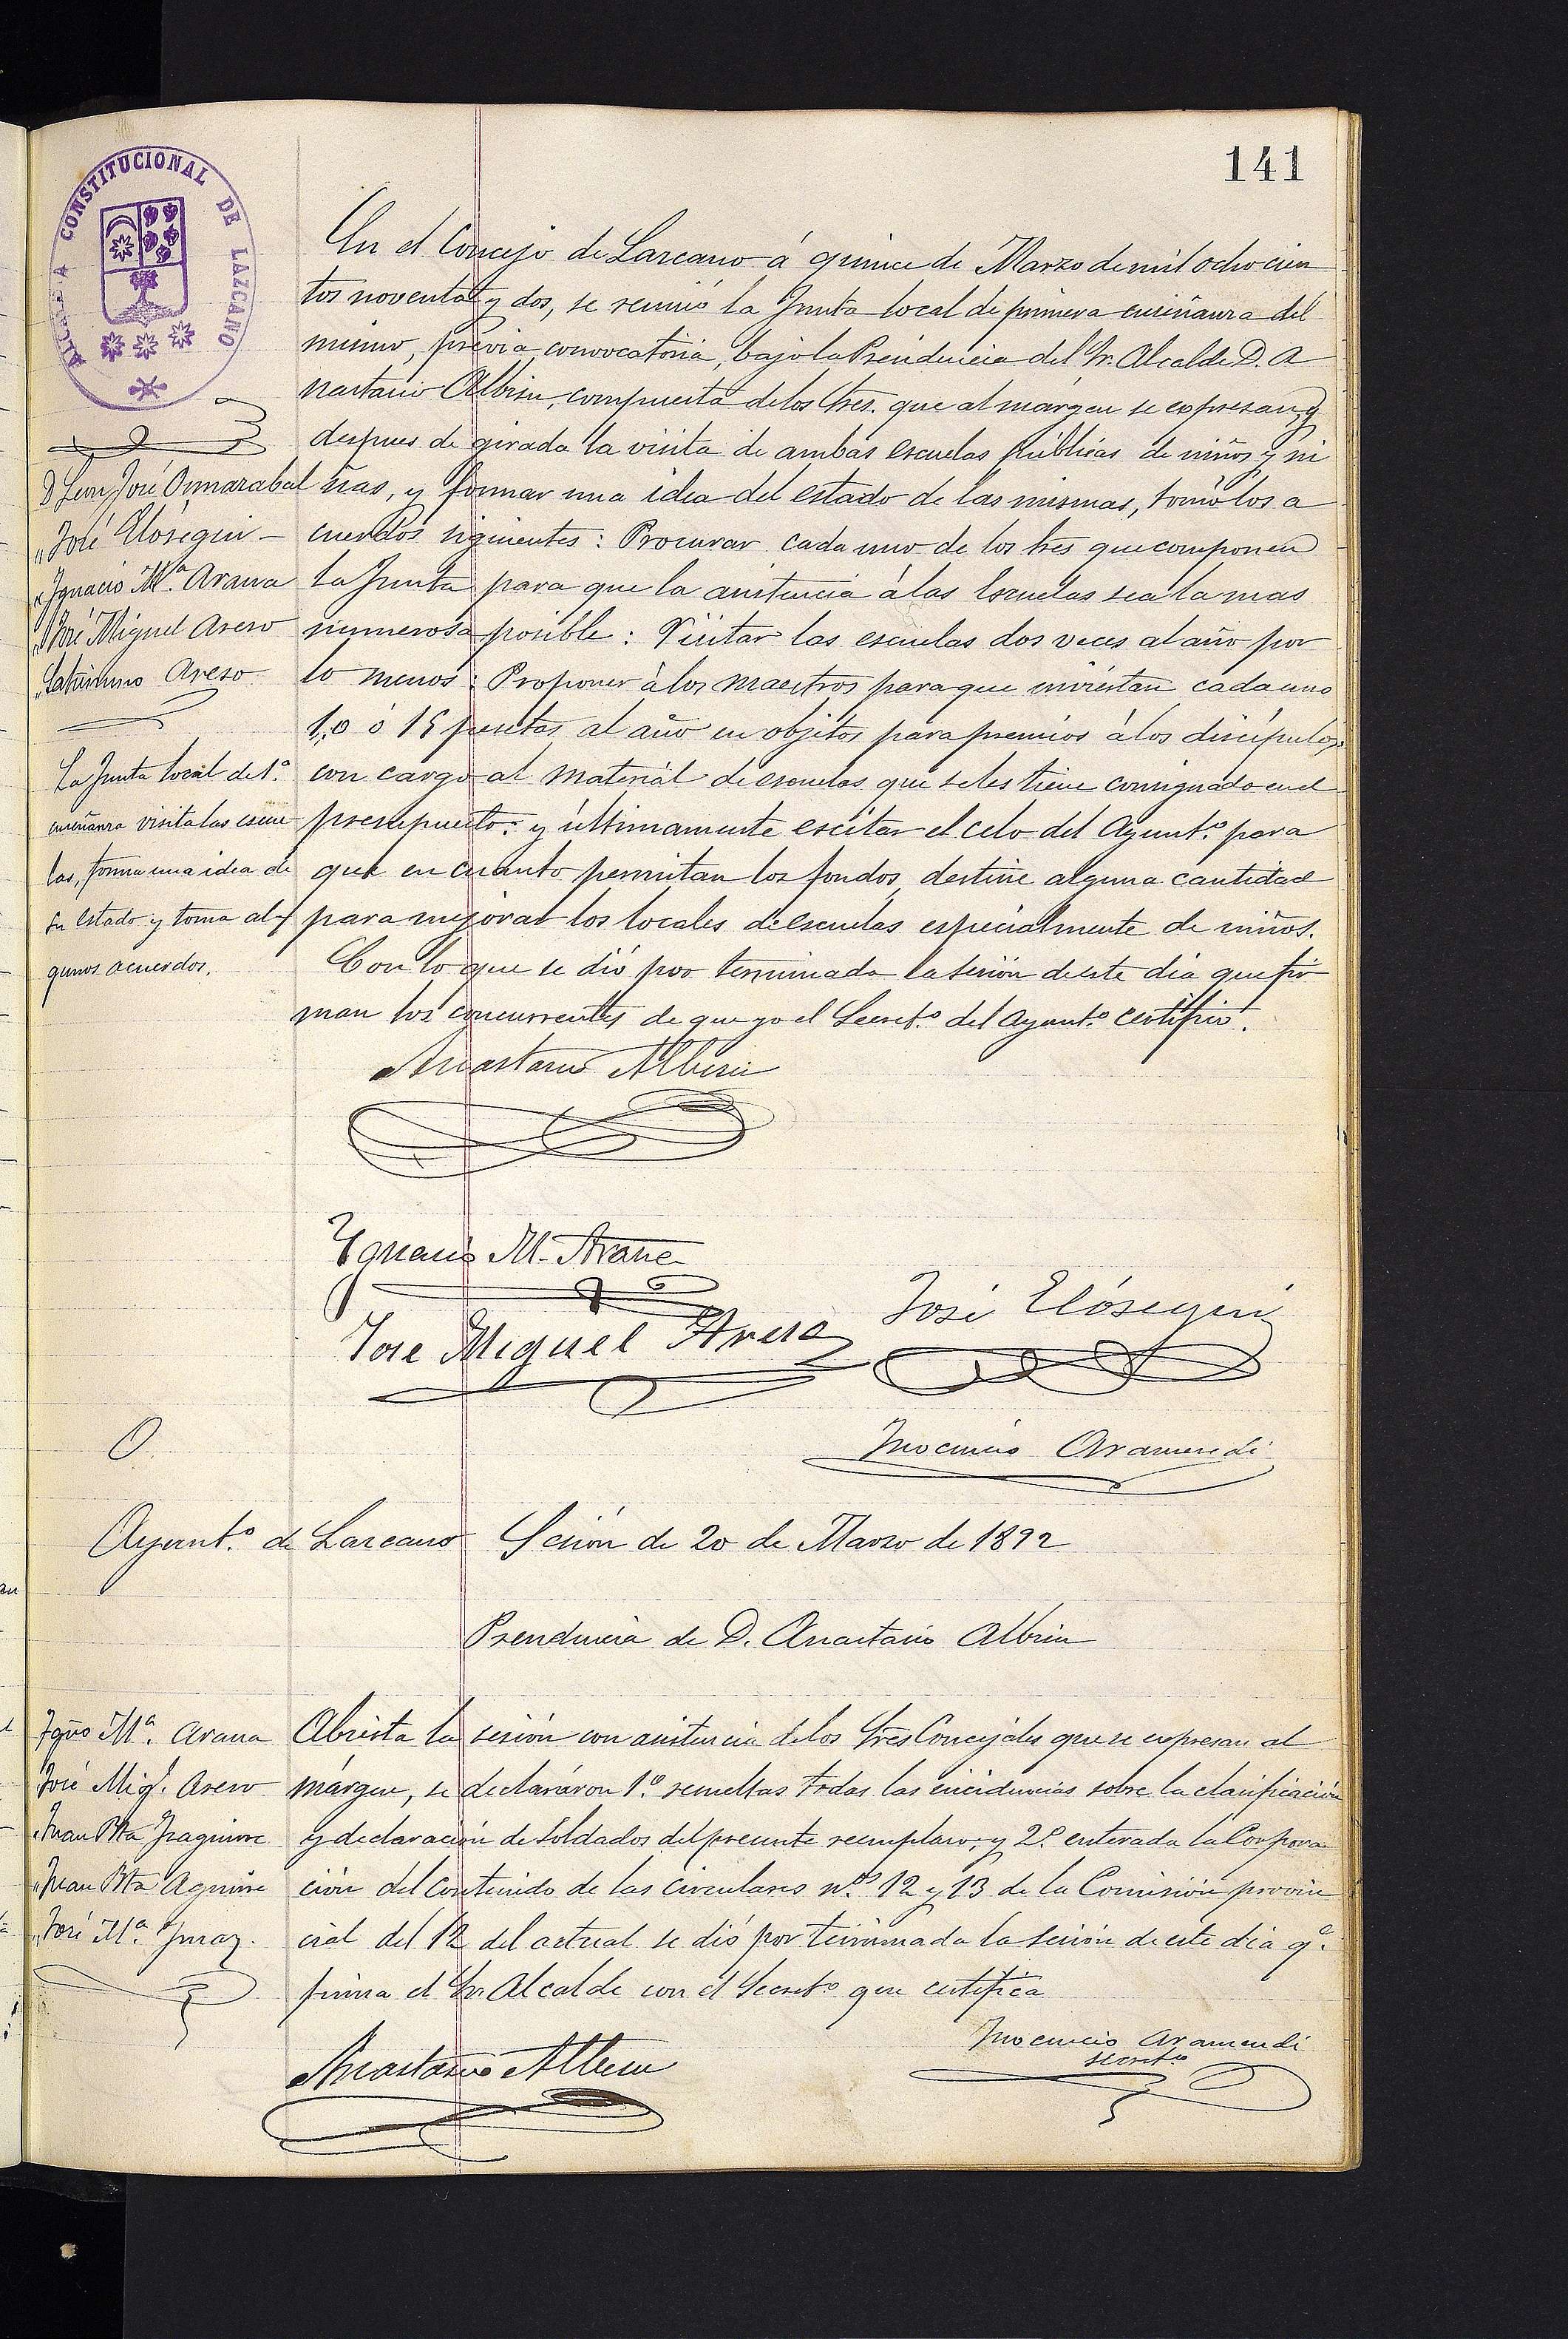 141
ALCALDIA CONSTITUCIONAL DE LAZCANO
En el Concejo de Lazcano á quince de Marzo de mil ochocien
tos noventa y dos, se reunió la Junta local de primera enseñanza del
mismo, prévia convocatoria, bajo la Presidencia del Sr. Alcalde D. A
nastasio Albisu, compuesta de los Sres. que al márgen se expresan, y
despues de girada la visita de ambas escuelas públicas de niños y ni
ñas, y formar una idea del estado de las mismas, tomó los a
cuerdos siguientes: Procurar cada uno de los Sres que componen
la Junta para que la asistencia á las Escuelas sea la mas
numerosa posible: Visitar las escuelas dos veces al año por
lo menos: Proponer á los maestros para que inviertan cada uno
10 ó 15 pesetas al año en objetos para premios á los discípulos
con cargo al material de escuelas que se les tiene consignado en el
presupuesto: y últimamente escitar el celo del Ayunt.º para
que en cuanto permitan los fondos, destine alguna cantidad
para mejorar los locales de escuelas especialmente de niños.
Con lo que se dió por terminada la sesión de este dia que fir
man los concurrentes de que yo el Secret.º del Ayunt.º certifico.
D. Leon José Ormazabal
" José Elósegui
" Ignacio M.ª Arana
" José Miguel Areso
" Saturnino Areso
La Junta local de 1.ª
enseñanza visita las escue
las, forma una idea de
su estado y toma al
gunos acuerdos.
Anastasio Albisu
Ygnacio M. Arana
José Elósegui
Jose Miguel Areso
Inocencio Aramendi
O
Ayunt.º de Lazcano Sesión de 20 de Marzo de 1892
Presidencia de D. Anastasio Albisu
Igñº M.ª Arana
José Mig.l Areso
Juan Bta
Juan Bta Aguirre
José M.ª
Abierta la sesión con asistencia de los Sres Concejales que se expresan al
márgen, se declararon 1.º resueltas todas las incidencias sobre la clasificación
y declaración de Soldados del presente reemplazo; y 2.º enterada la Corpora
ción del contenido de las circulares n.os 12 y 13 de la Comisión provin
cial del 12 del actual se dió por terminada la sesión de este dia q.e
firma el Sr. Alcalde con el Secret.º que certifica
Anastasio Albisu
Inocencio Aramendi
Secret.º